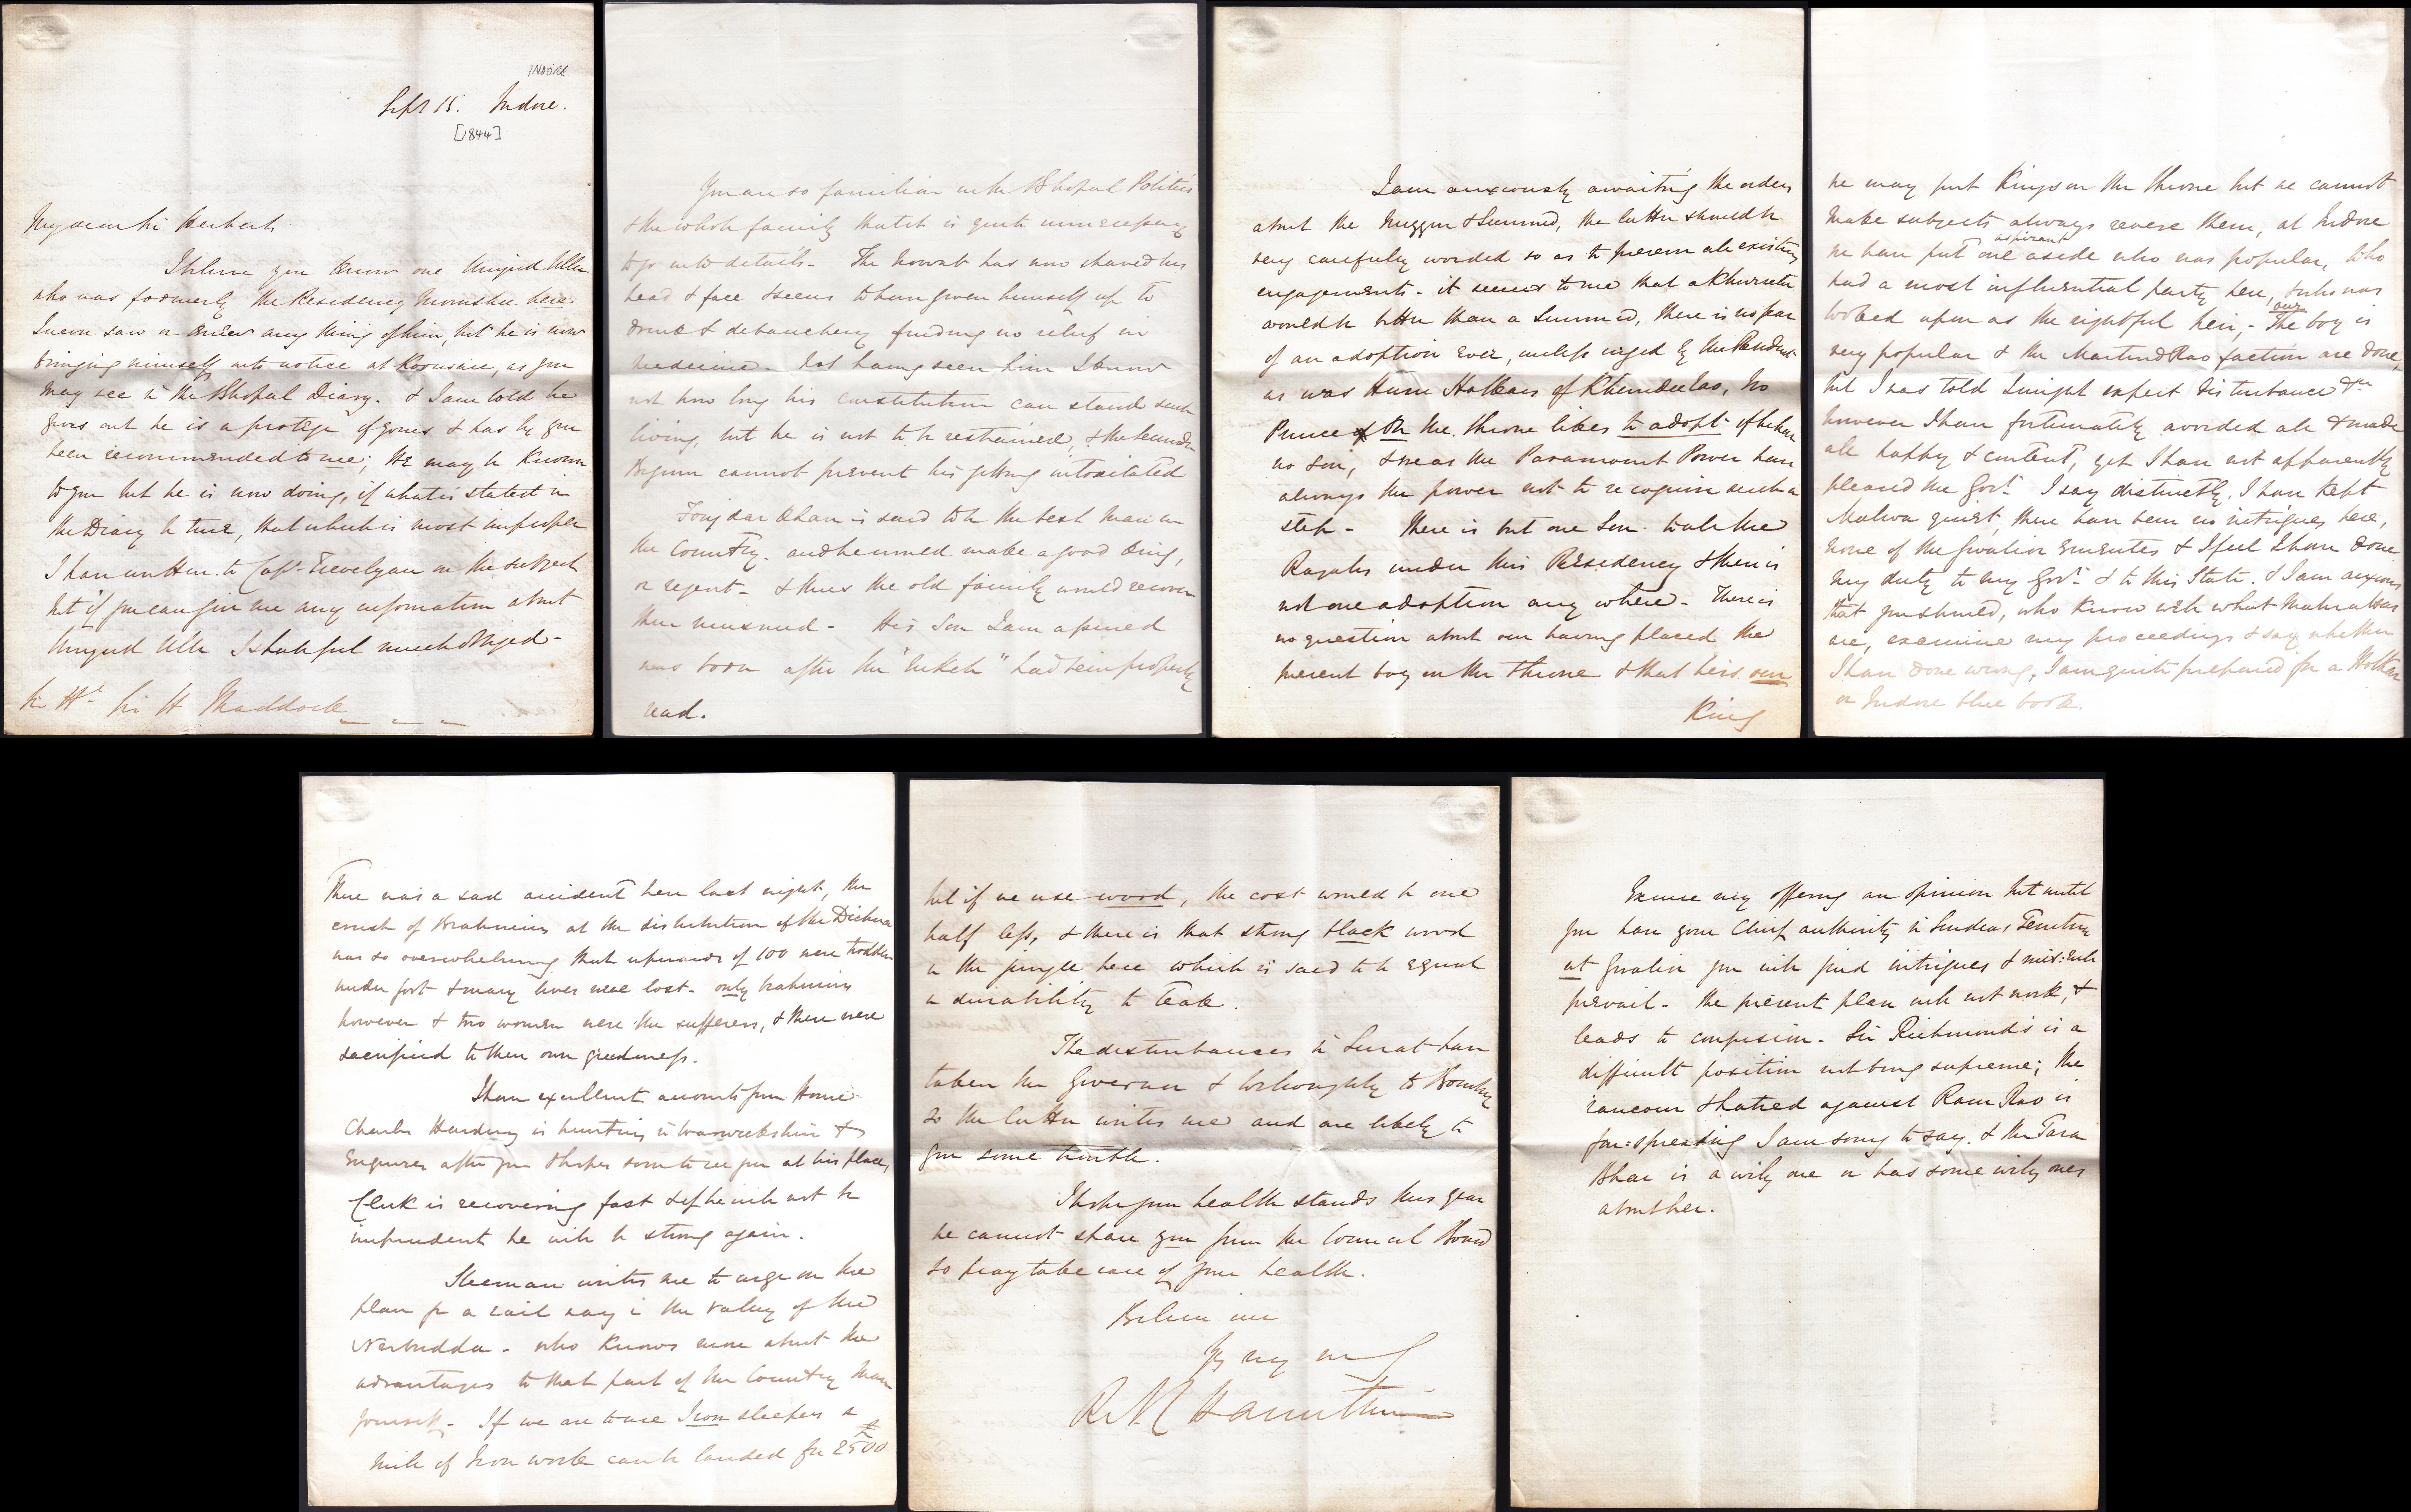 INDORE
Sept 15. Indore.
[1844]
My dear Sir Herbert
I believe you know one Amjud Ulla
who was formerly the Residency Moonshee here
I never saw or knew any thing of him, but he is now
bringing himself into notice at as you
may see in the Bhopal Diary. & I am told he
gives out he is a protégé of yours & has by you
been recommended to me; He may be known
to you but he is now doing, if what is stated in
the Diary be true, that which is most improper
I have written to Capt. Trevelyan on the subject
but if you can give me any information about
Amjud Ulla I shall feel much obliged -
Sir H. Maddock
You are so familiar with Bhopal Politics
& the whole family that it is quite unnecessary
to go into details - The Nowab has now shaved his
head & face & seems to have given himself up to
drink & debauchery finding no relief in
medicine - Not having seen him I know
not how long his constitution can stand such
living, but he is not to be restrained, & the Secunder
Begum cannot prevent his getting intoxicated
Foujdar Khan is said to be the best man in
the Country - and he would make a good King,
or regent - & thus the old family would recover
the musnud - His Son I am assured
was born after the "nikah" had been properly
read.
I am anxiously awaiting the orders
about the Nuzzur & Sunnud, the latter should be
very carefully worded so as to preserve all existing
engagements - it seems to me that a Khureeta
would be better than a Sunnud, there is no fear
of an adoption ever, unless urged by the Resident
as was Hurri Holkars of Khundeerao, no
Prince on the throne likes to adopt if he have
no Son, & we as the Paramount Power have
always the power not to recognise such a
step - There is but one Son to all the
Rajahs under this Residency & there is
not one adoption any where - There is
no question about our having placed the
present boy on the throne & that he is our
King
we may put Kings on the throne but we cannot
make subjects always revere them, at Indore
we have put one aspirant aside who was popular, who
had a most influential party here, & who was
looked upon as the rightful heir, - The boy is now
very popular & the Martund Rao faction are done,
but I was told I might expect disturbance &c
however I have fortunately avoided all & made
all happy & content, yet I have not apparently
pleased the Govt. I say distinctly, I have kept
Malwa quiet, there have been no intrigues here,
none of the Gwalior emeutes & I feel I have done
my duty to my Govt. & to this State. & I am anxious
that you should, who know well what Mahrattas
are, examine my proceedings & say whether
I have done wrong, I am quite prepared for a Holkar
or Indore blue book.
There was a sad accident here last night, the
crush of Brahmins at the distribution of the Dichna
was so overwhelming that upwards of 100 were trodden
under foot & many lives were lost - only brahmins
however & two women were the sufferers, & these were
sacrificed to their own greediness.
I have excellent accounts from Home
Charles Harding is hunting in Warwickshire &
enquires after you & hopes soon to see you at his place,
Clerk is recovering fast & if he will not be
imprudent he will be strong again.
Sleeman writes me to urge on the
plan for a rail way in the valley of the
Nerbudda - who knows more about the
advantages to that part of the Country than
yourself - If we are to use Iron sleepers a
mile of Iron work can be landed for 2500£
but if we use wood, the cost would be one
half less, & there is that strong black wood
in the jungle here which is said to be equal
in durability to Teak.
The disturbances in Surat have
taken the Governor & Willoughby to Bombay
so the latter writes me and are likely to
give some trouble.
I hope your health stands this year
we cannot spare you from the Council Board
so pray take care of your health.
Believe me
R N C Hamilton
Excuse my offering an opinion but until
you have your Chief authority in Sindeas Territory
at Gwalior you will find intrigues & mis=rule
prevail - the present plan will not work, &
leads to confusion - Sir Richmond's is a
difficult position not being supreme; the
rancour & hatred against Ram Rao is
far=spreading I am sorry to say. & the Tara
Bhae is a wily one or has some wily ones
about her.